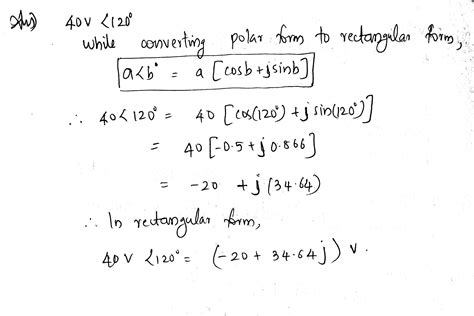 Ans) 40 V <120°
while converting polar form to rectangular form,
a<b° = a [cosb+jsinb]
∴ 40<120° = 40 [cos(120°) + j sin(120°)]
= 40 [-0.5 + j 0.866]
= -20 + j (34.64)
∴ In rectangular form,
40 V <120° = (-20 + 34.64j) V.